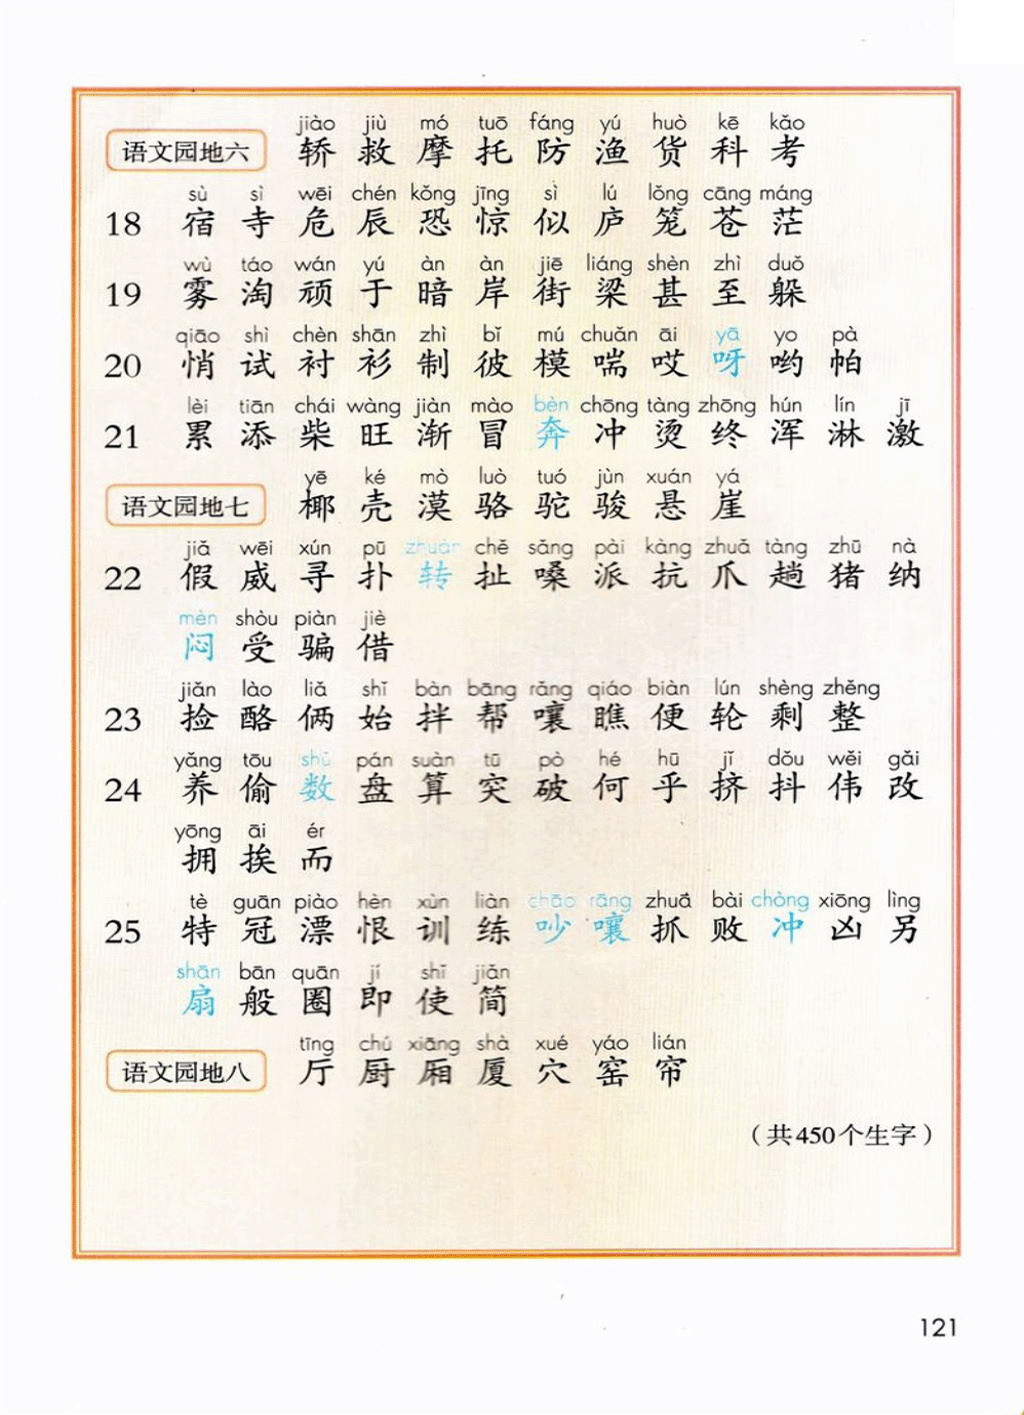 jiào jiù mó tuō fáng yú huò kē kǎo
语文园地六 轿 救 摩 托 防 渔 货 科 考
sù sì wēi chén kǒng jīng sì lú lǒng cāng máng
18 宿 寺 危 辰 恐 惊 似 庐 笼 苍 茫
wù táo wán yú àn àn jiē liáng shèn zhì duǒ
19 雾 淘 顽 于 暗 岸 街 梁 甚 至 躲
qiāo shì chèn shān zhì bǐ mú chuǎn āi yā yo pà
20 悄 试 衬 衫 制 彼 模 喘 哎 呀 哟 帕
lèi tiān chái wàng jiàn mào bèn chōng tàng zhōng hún lín jī
21 累 添 柴 旺 渐 冒 奔 冲 烫 终 浑 淋 激
yē ké mò luò tuó jùn xuán yá
语文园地七 椰 壳 漠 骆 驼 骏 悬 崖
jiǎ wēi xún pū zhuàn chě sǎng pài kàng zhuǎ tàng zhū nà
22 假 威 寻 扑 转 扯 嗓 派 抗 爪 趟 猪 纳
mèn shòu piàn jiè
闷 受 骗 借
jiǎn lào liǎ shǐ bàn bāng rǎng qiáo biàn lún shèng zhěng
23 捡 酪 俩 始 拌 帮 嚷 瞧 便 轮 剩 整
yǎng tōu shǔ pán suàn tū pò hé hū jǐ dǒu wěi gǎi
24 养 偷 数 盘 算 突 破 何 乎 挤 抖 伟 改
yōng āi ér
拥 挨 而
tè guān piào hèn xùn liàn chāo rāng zhuā bài chòng xiōng lìng
25 特 冠 漂 恨 训 练 吵 嚷 抓 败 冲 凶 另
shān bān quān jí shǐ jiǎn
扇 般 圈 即 使 简
tīng chú xiāng shà xué yáo lián
语文园地八 厅 厨 厢 厦 穴 窑 帘
（共450个生字）
121